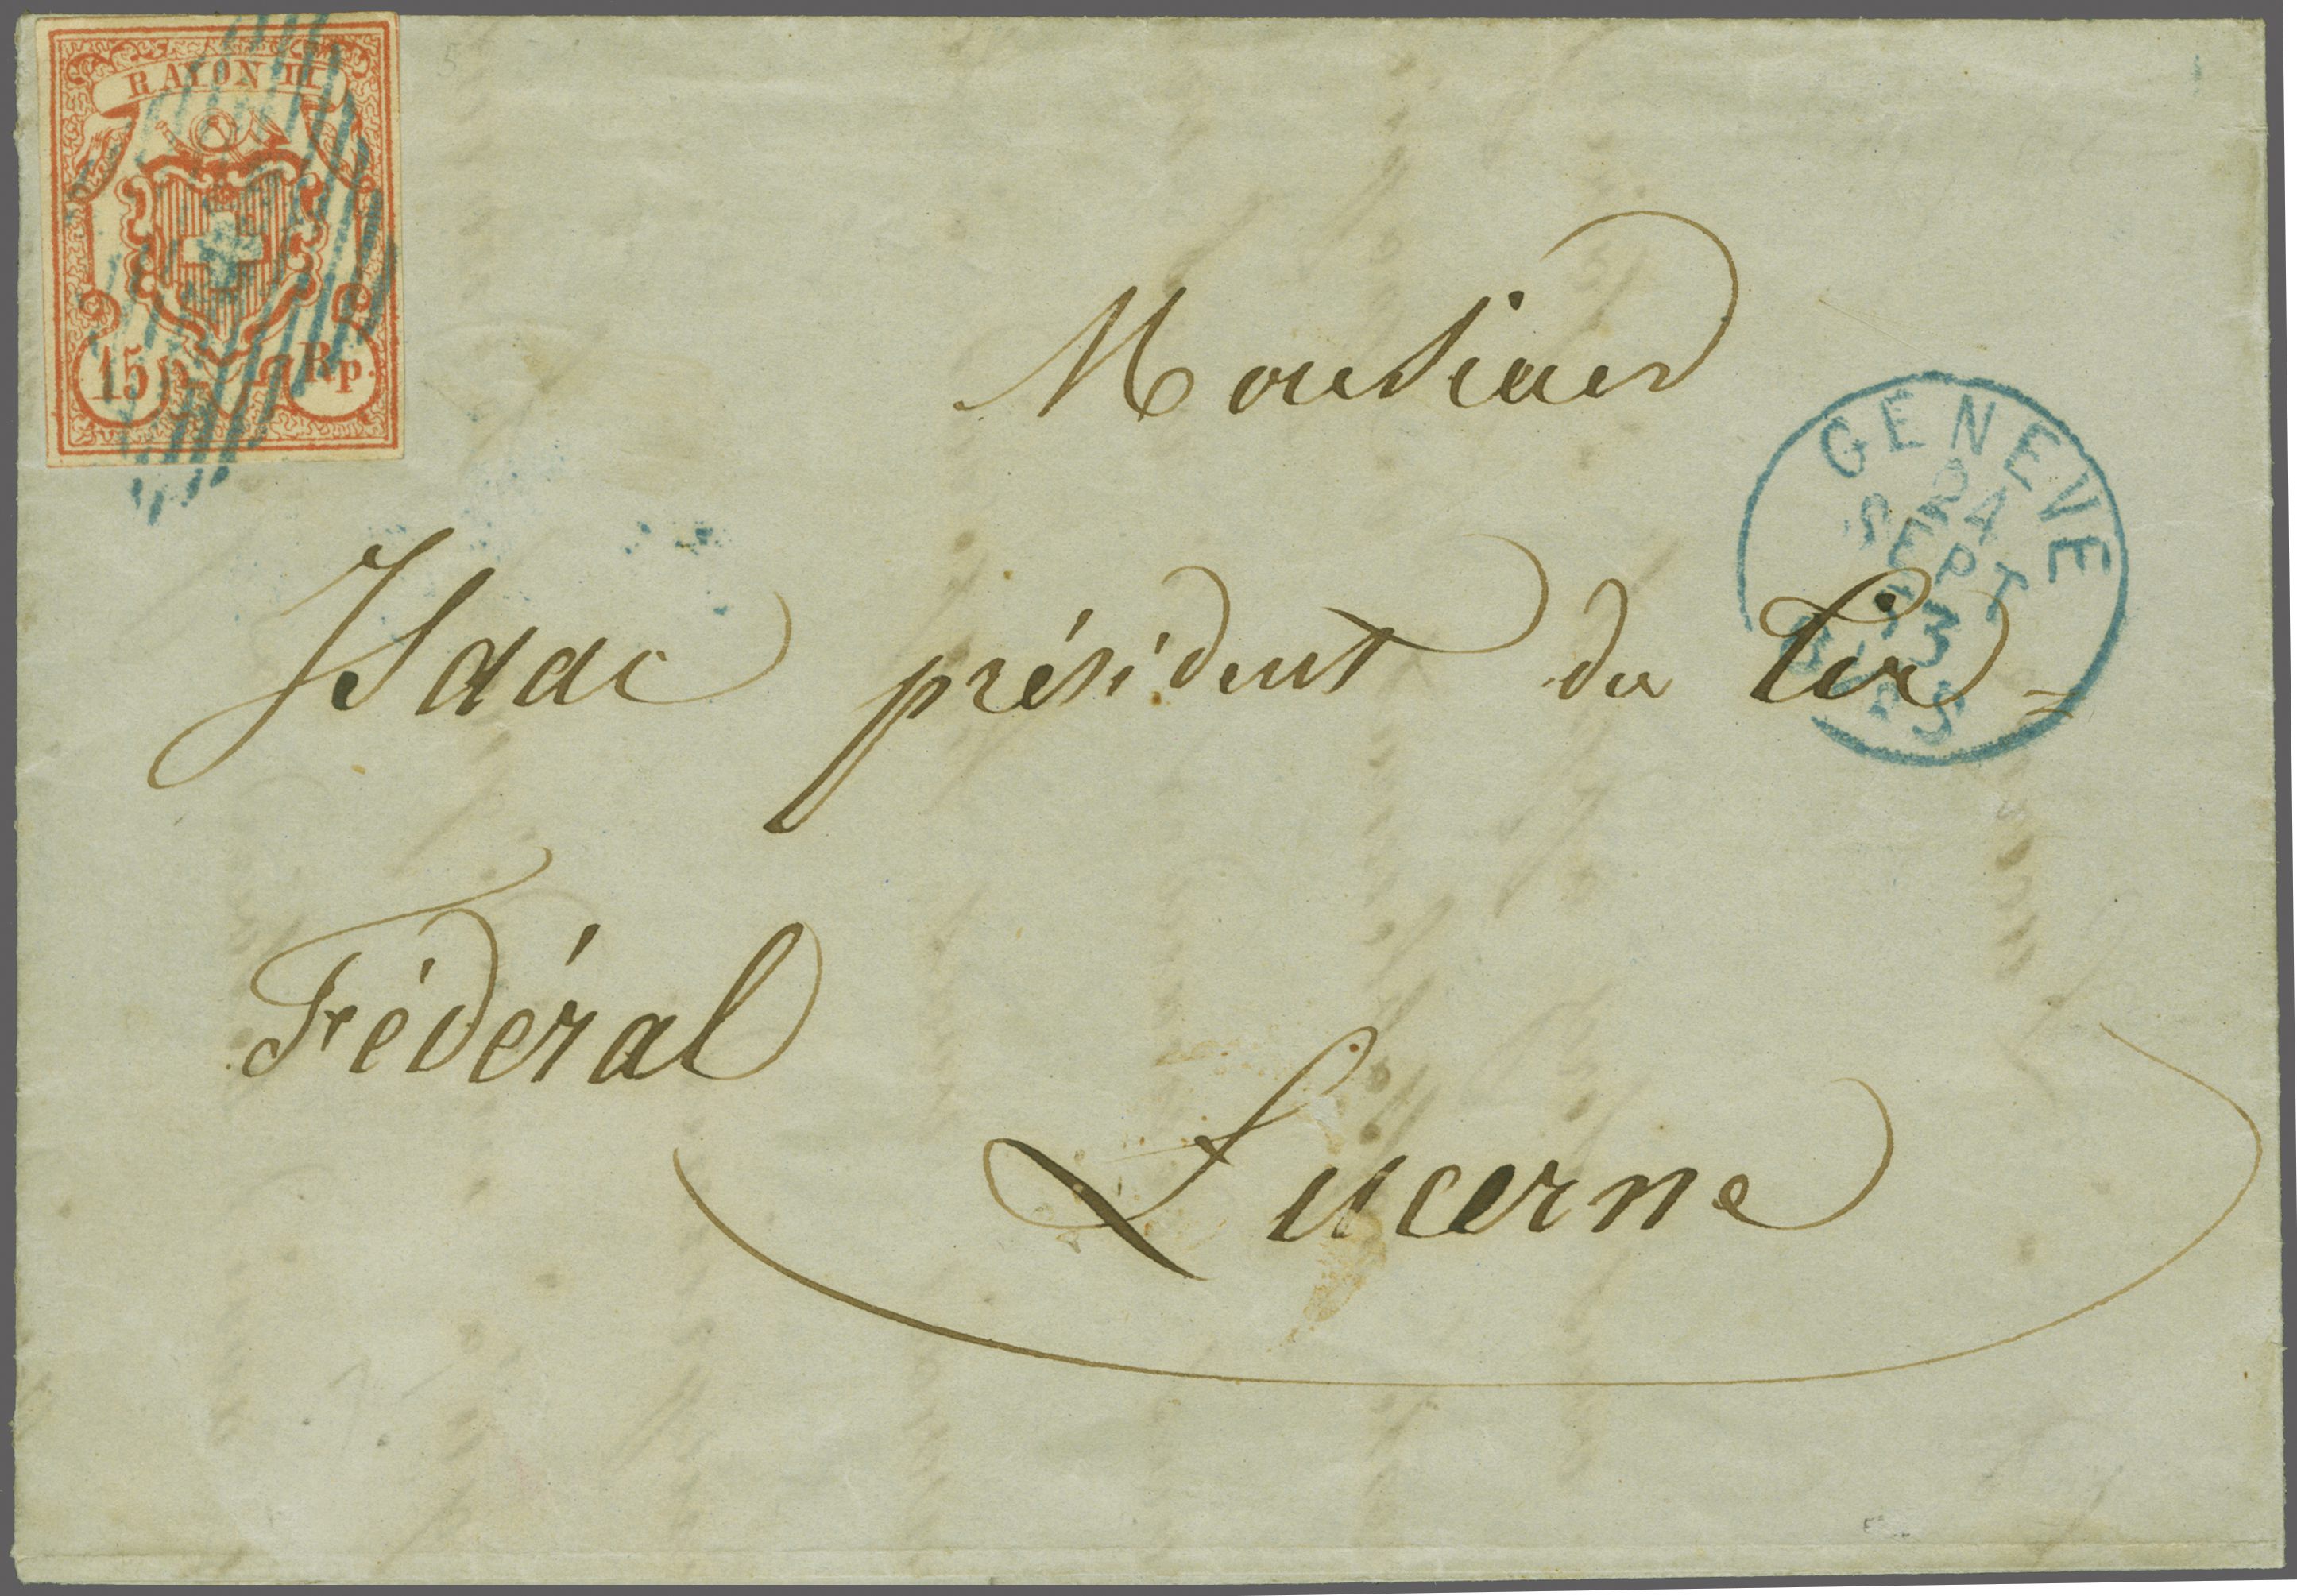 RAYON III
15 Rp.
Monsieur
GENEVE
24
SEPT
53
Isaac président du Tir-
Fédéral
Lucerne